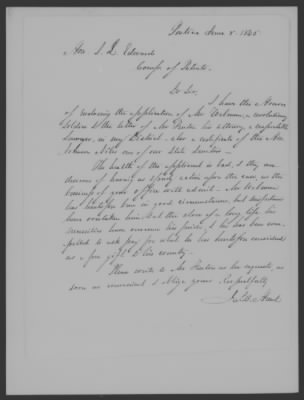 June 8. 1845
Hon. J. L. Edwards
Comr of Patents
Dr Sir,
I have the Honor
of enclosing the application of Mr Welman, a revolutionary
Soldier & the letter of Mr his attorney, a respectable
Lawyer, in my District also a certificate of the Hon
one of our State Senators.
The health of the applicant is bad, & they are
desirous of having as speedy action upon the case, as the
business of your office will admit. Mr Welman
has heretofore been in good circumstances but misfortunes
have overtaken him & at the close of a long life his
necessities have overcome his pride, & he has been com-
pelled to ask pay for what he has heretofore considered
as a free gift to his country.
Please write to Mr as he requests, as
soon as convenient & oblige yours Respectfully